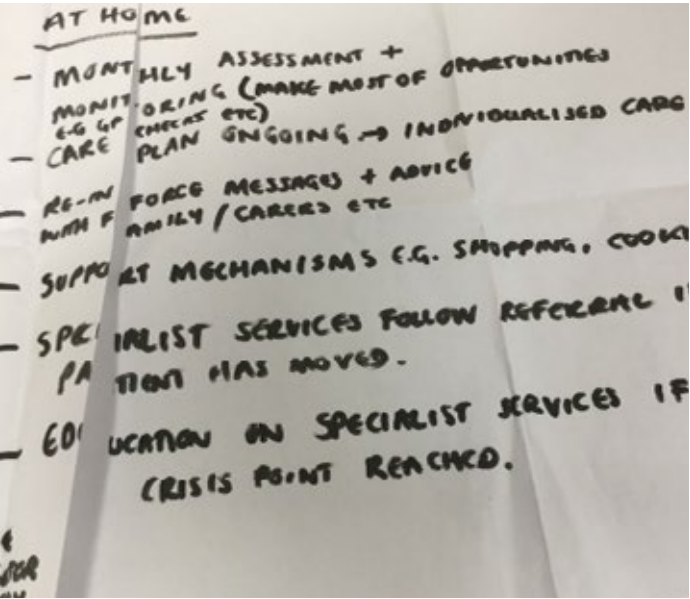 AT HOME
- MONTHLY ASSESSMENT +
MONITORING (MAKE MOST OF OPPORTUNITIES
E.G GP CHECKS ETC)
- CARE PLAN ONGOING → INDIVIDUALISED CARE
- RE-IN FORCE MESSAGES + ADVICE
WITH FAMILY / CARERS ETC
- SUPPORT MECHANISMS E.G. SHOPPING, COOKI
- SPECIALIST SERVICES FOLLOW REFERRAL I
PATIENT HAS MOVED.
- EDUCATION ON SPECIALIST SERVICES IF
CRISIS POINT REACHED.